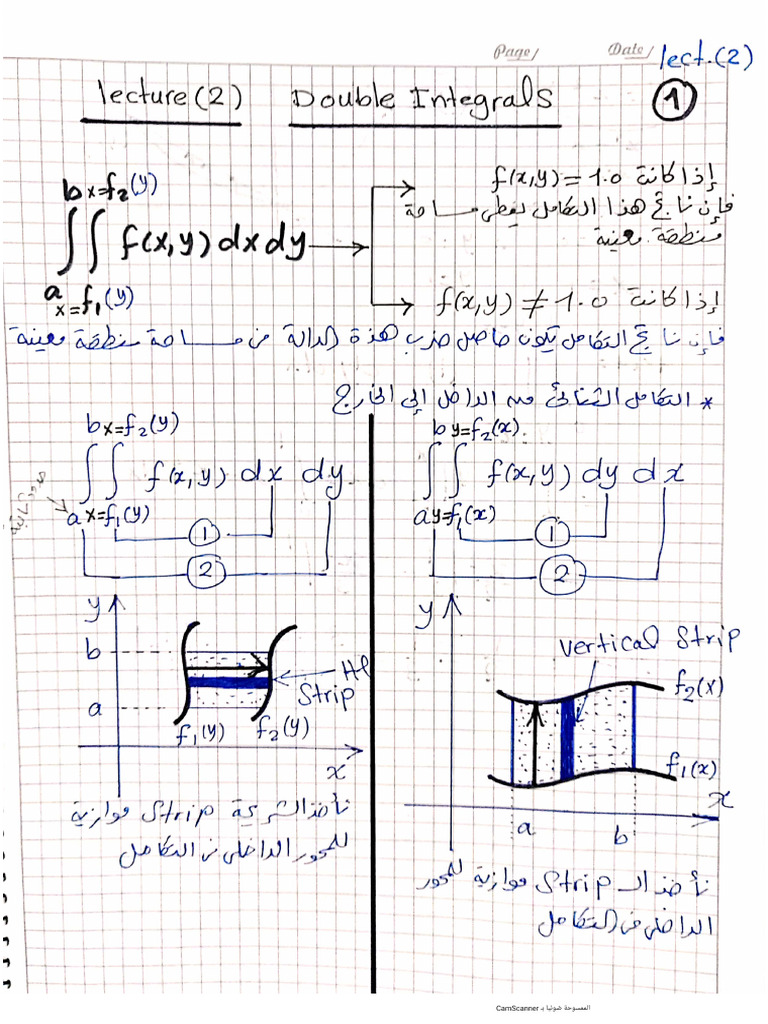 Page/ Date/ lect.(2)
lecture(2) Double Integrals 1
b x=f₂(y)
∫∫ f(x,y) dx dy
a x=f₁(y)
إذا كانت f(x,y) = 1.0
فإن ناتج هذا التكامل يعطي مساحة
منطقة معينة
إذا كانت f(x,y) ≠ 1.0
فإن ناتج التكامل يكون حاصل ضرب هذة الدالة من مساحة منطقة معينة
* التكامل الثنائي من الداخل إلى الخارج
b x=f₂(y)
∫∫ f(x,y) dx dy
a x=f₁(y)
1
2
y
b
a
Hl
Strip
f₁(y) f₂(y)
x
نأخذ الشريحة Strip موازية
للمحور الداخلي في التكامل
b y=f₂(x)
∫∫ f(x,y) dy dx
a y=f₁(x)
1
2
y
vertical Strip
f₂(x)
f₁(x)
x
a b
نأخذ الـ Strip موازية للمحور
الداخلي في التكامل
الممسوحة ضوئيا بـ CamScanner